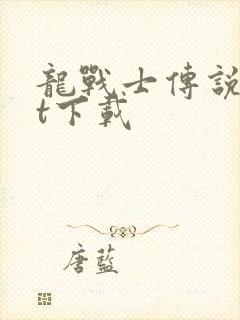 龍戰士傳說
t下載
唐藍